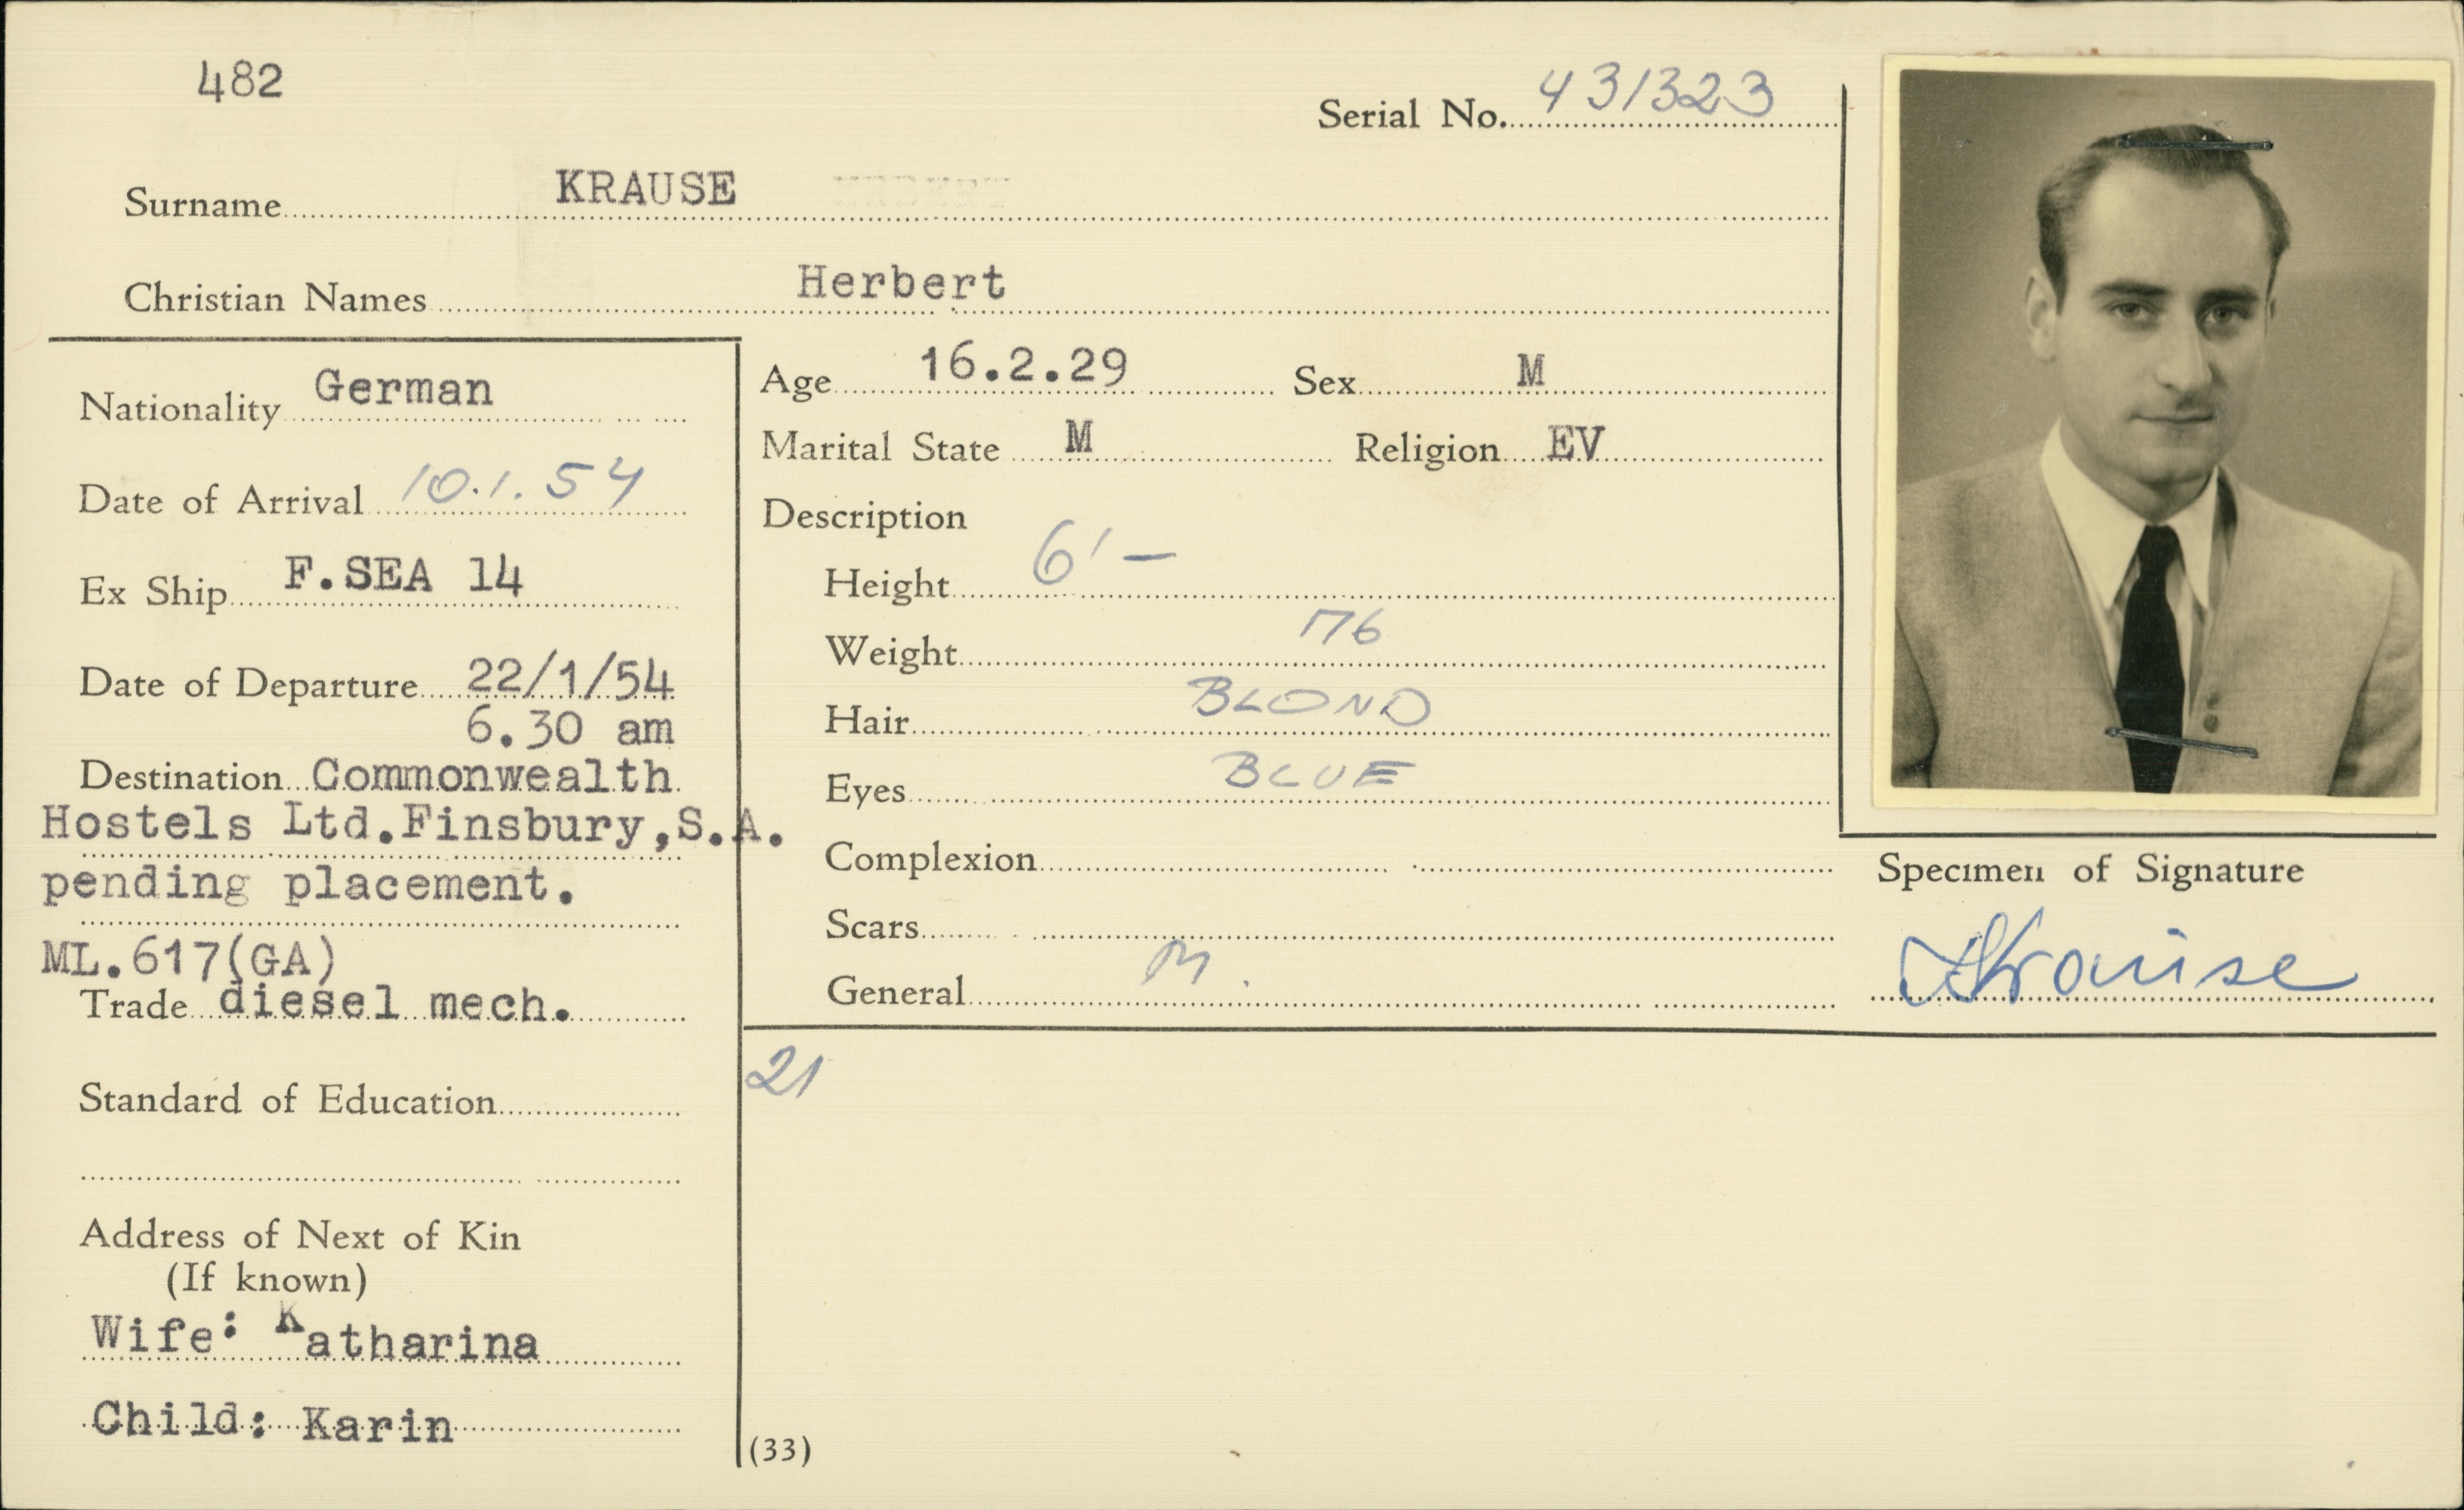 482
Serial No. 431323
Surname KRAUSE
Christian Names Herbert
Nationality German
Date of Arrival 10.1.54
Ex Ship F.SEA 14
Date of Departure 22/1/54
6.30 am
Destination Commonwealth
Hostels Ltd.Finsbury,S.A.
pending placement.
ML.617(GA)
Trade diesel mech.
Standard of Education
Address of Next of Kin
(If known)
Wife: Katharina
Child: Karin
Age 16.2.29 Sex M
Marital State M Religion EV
Description
Height 6' –
Weight 176
Hair BLOND
Eyes BLUE
Complexion
Scars
General M.
21
(33)
Specimen of Signature
HKrause